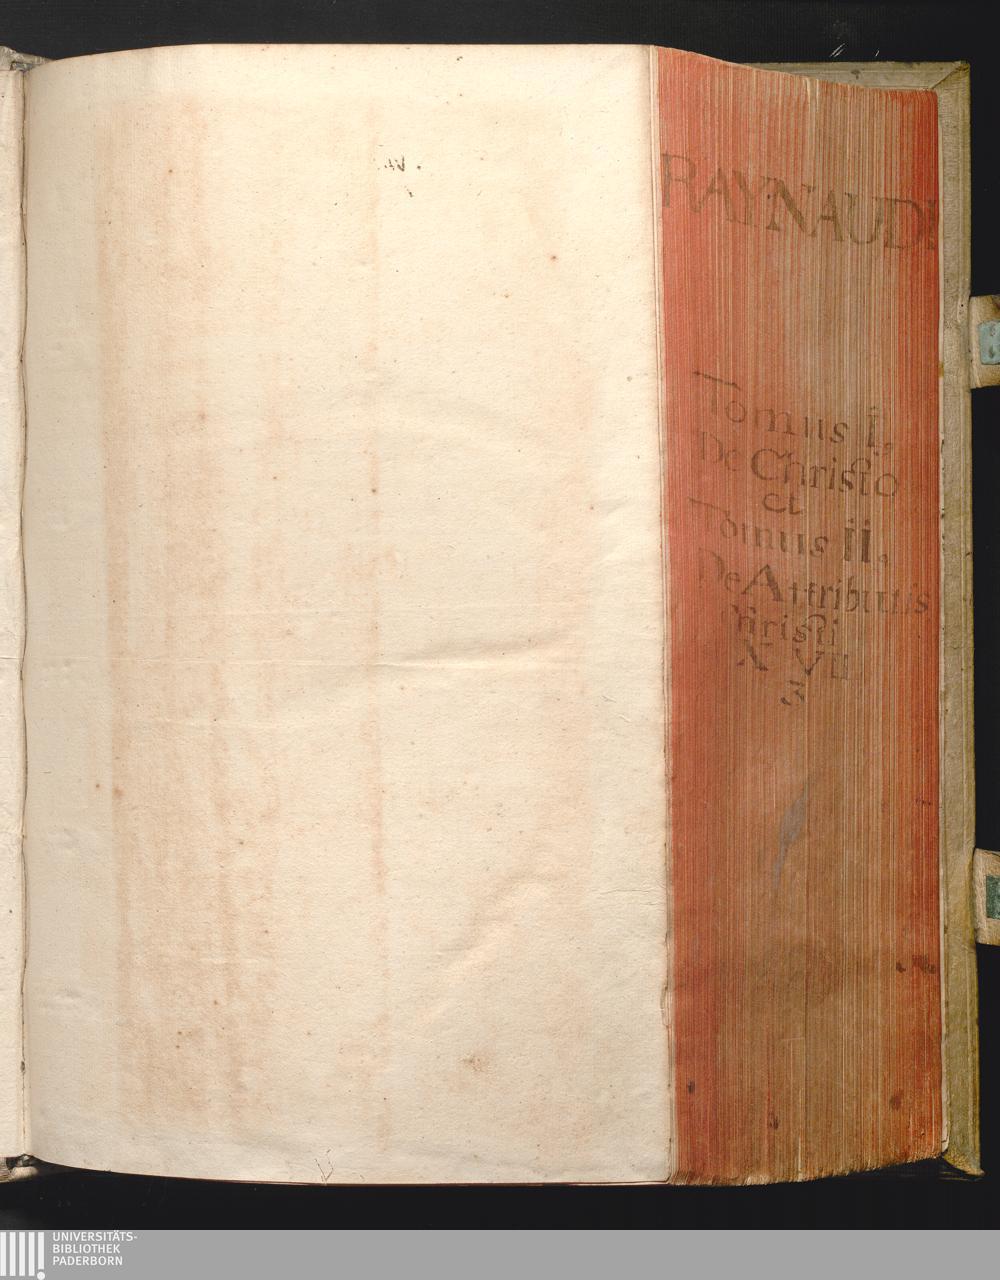 RAYNAUDI
Tomus I,
De Christo
et
Tomus II,
De Attributis
Christi
X VII
3
UNIVERSITÄTS-
BIBLIOTHEK
PADERBORN